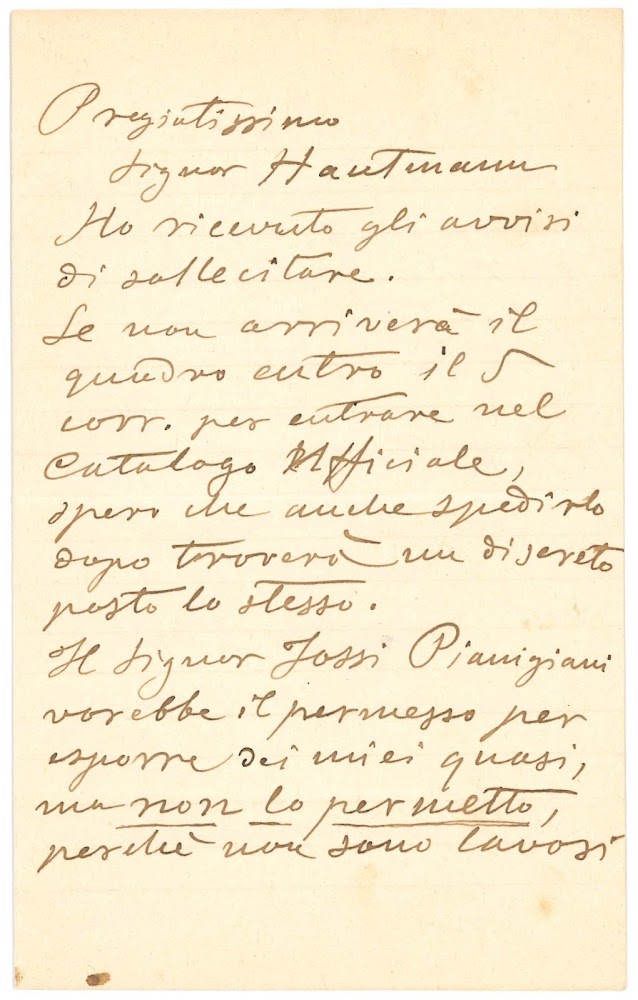 Pregiatissimo
Signor Hautmann
Ho ricevuto gli avvisi
di sollecitare.
Se non arriverà il
quadro entro il 5
corr. per entrare nel
Catalogo Ufficiale,
spero che anche spedirlo
dopo troverà un discreto
posto lo stesso.
Il Signor Fossi Pianigiani
vorebbe il permesso per
esporre dei miei quasi,
ma non lo permetto,
perchè non sono lavori